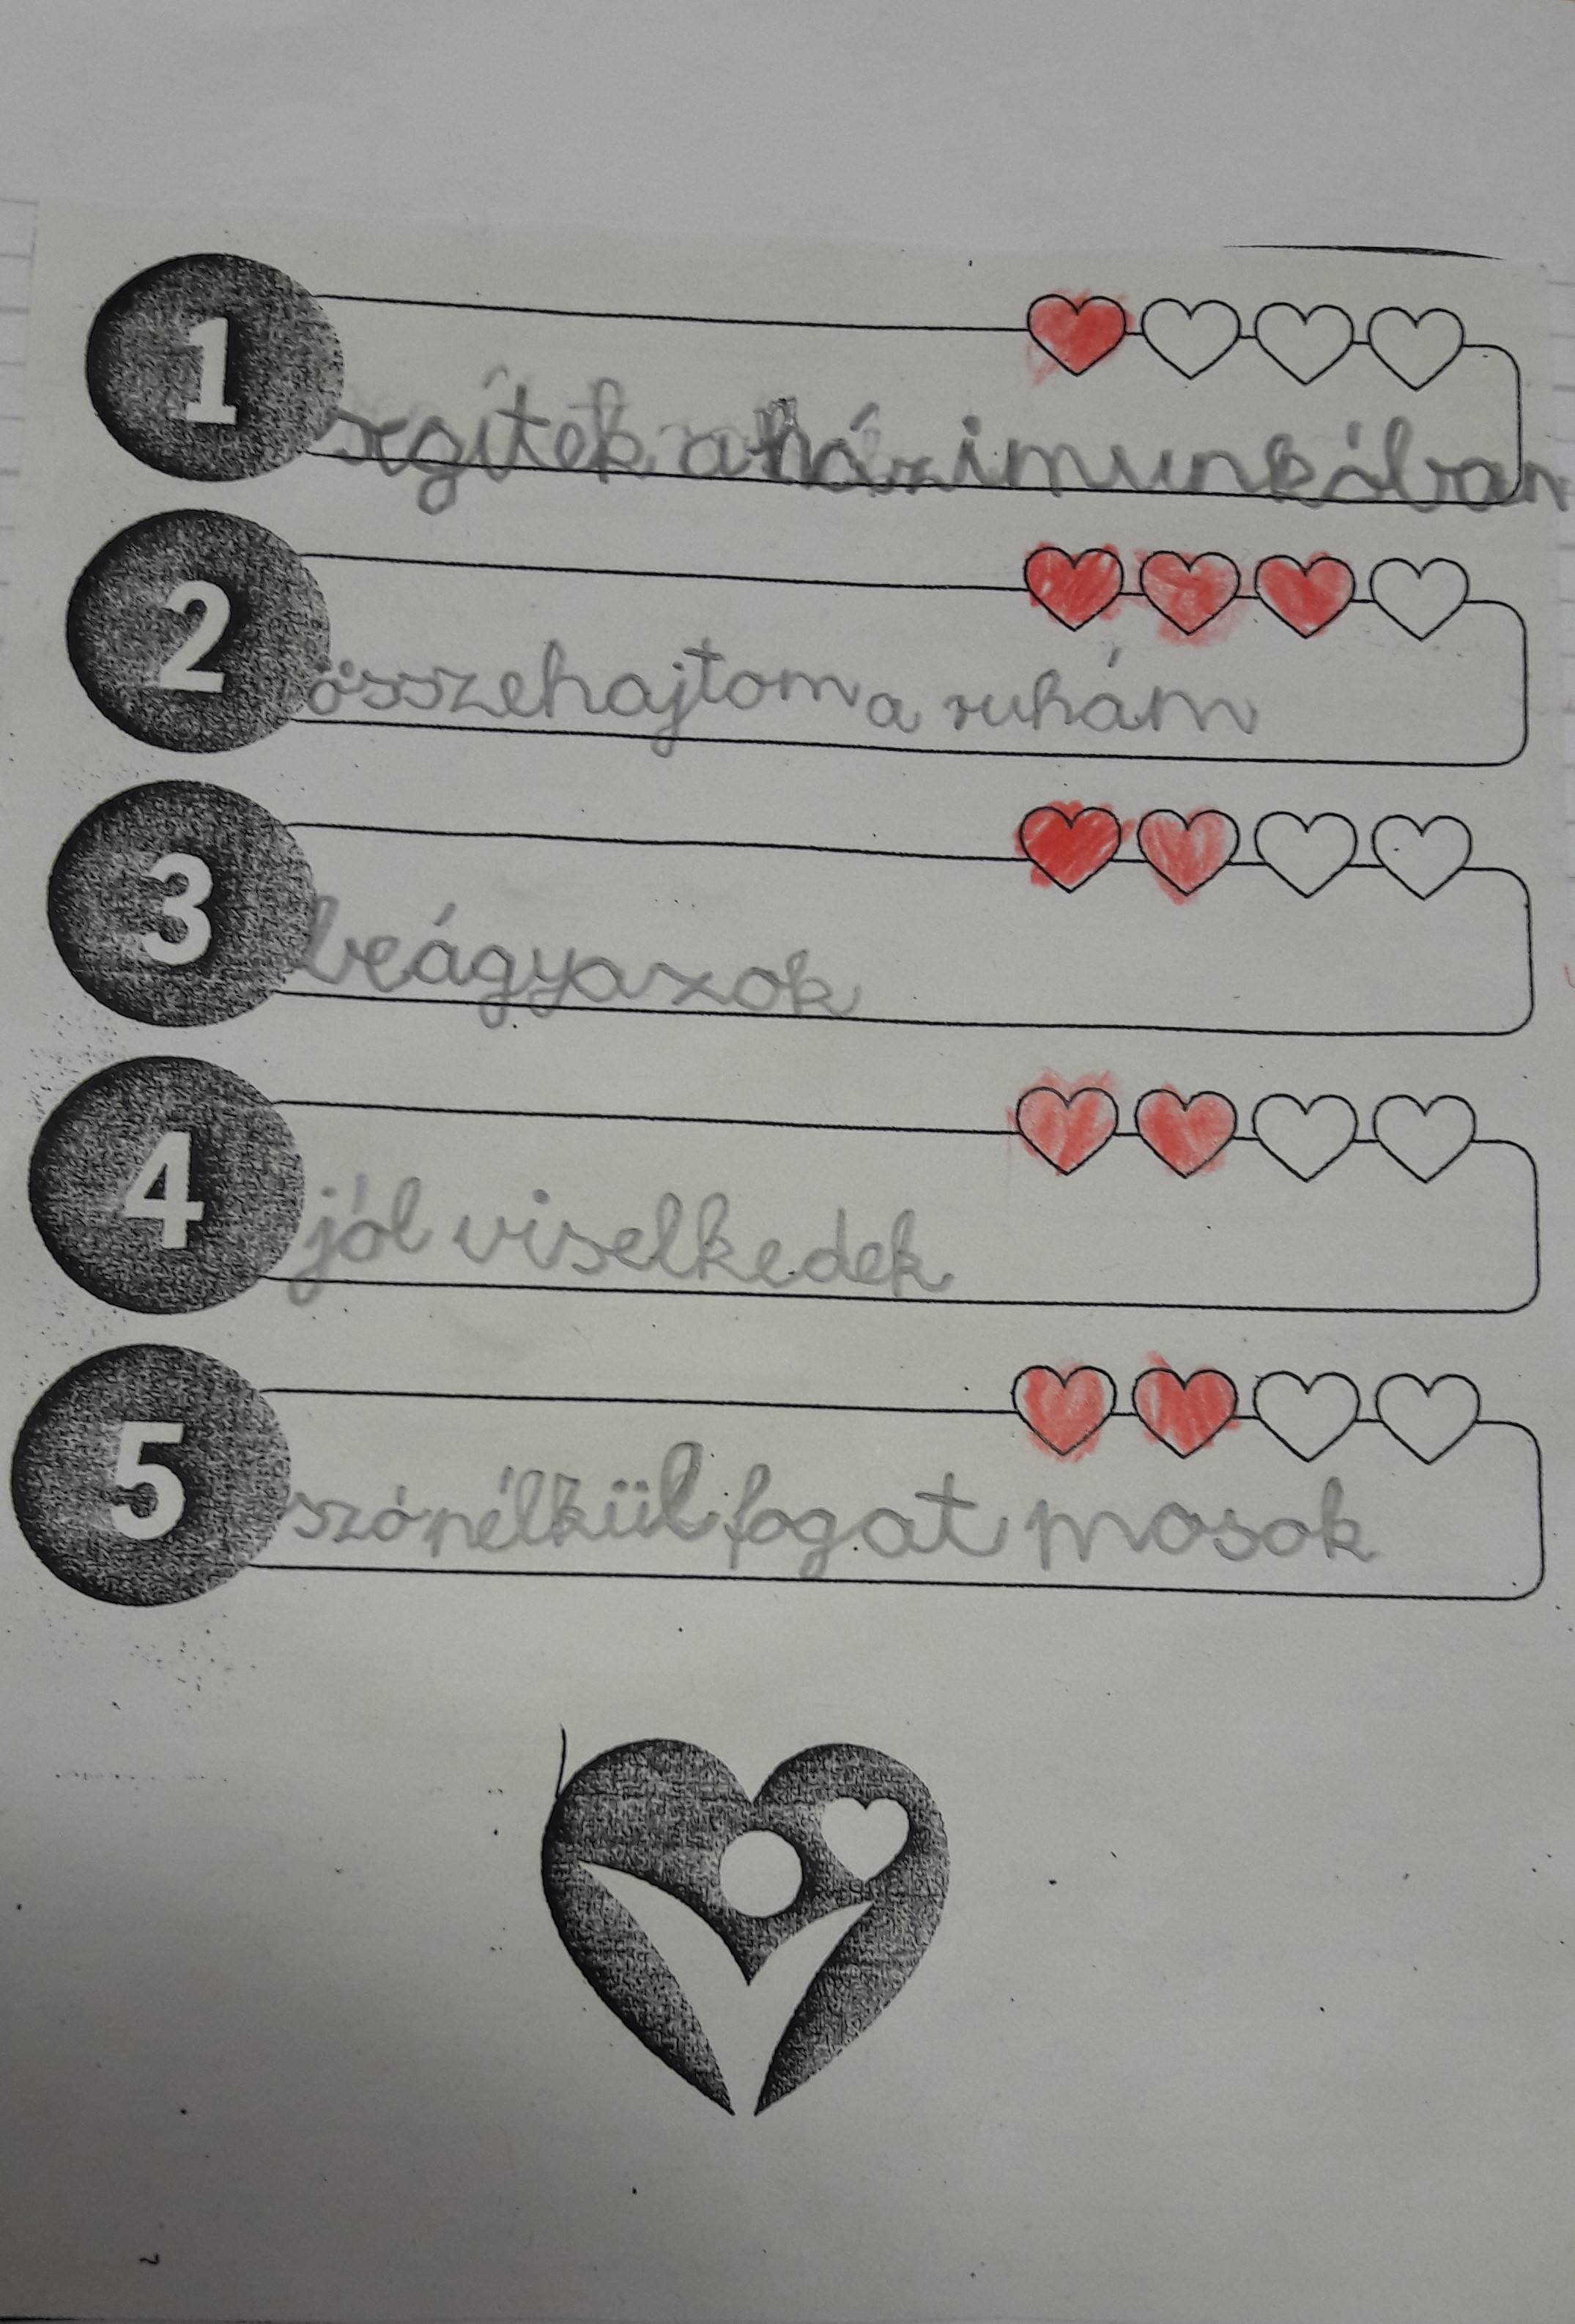 1
segítek a házimunkában
2
összehajtom a ruhám
3
beágyazok
4
jól viselkedek
5
szó nélkül fogat mosok